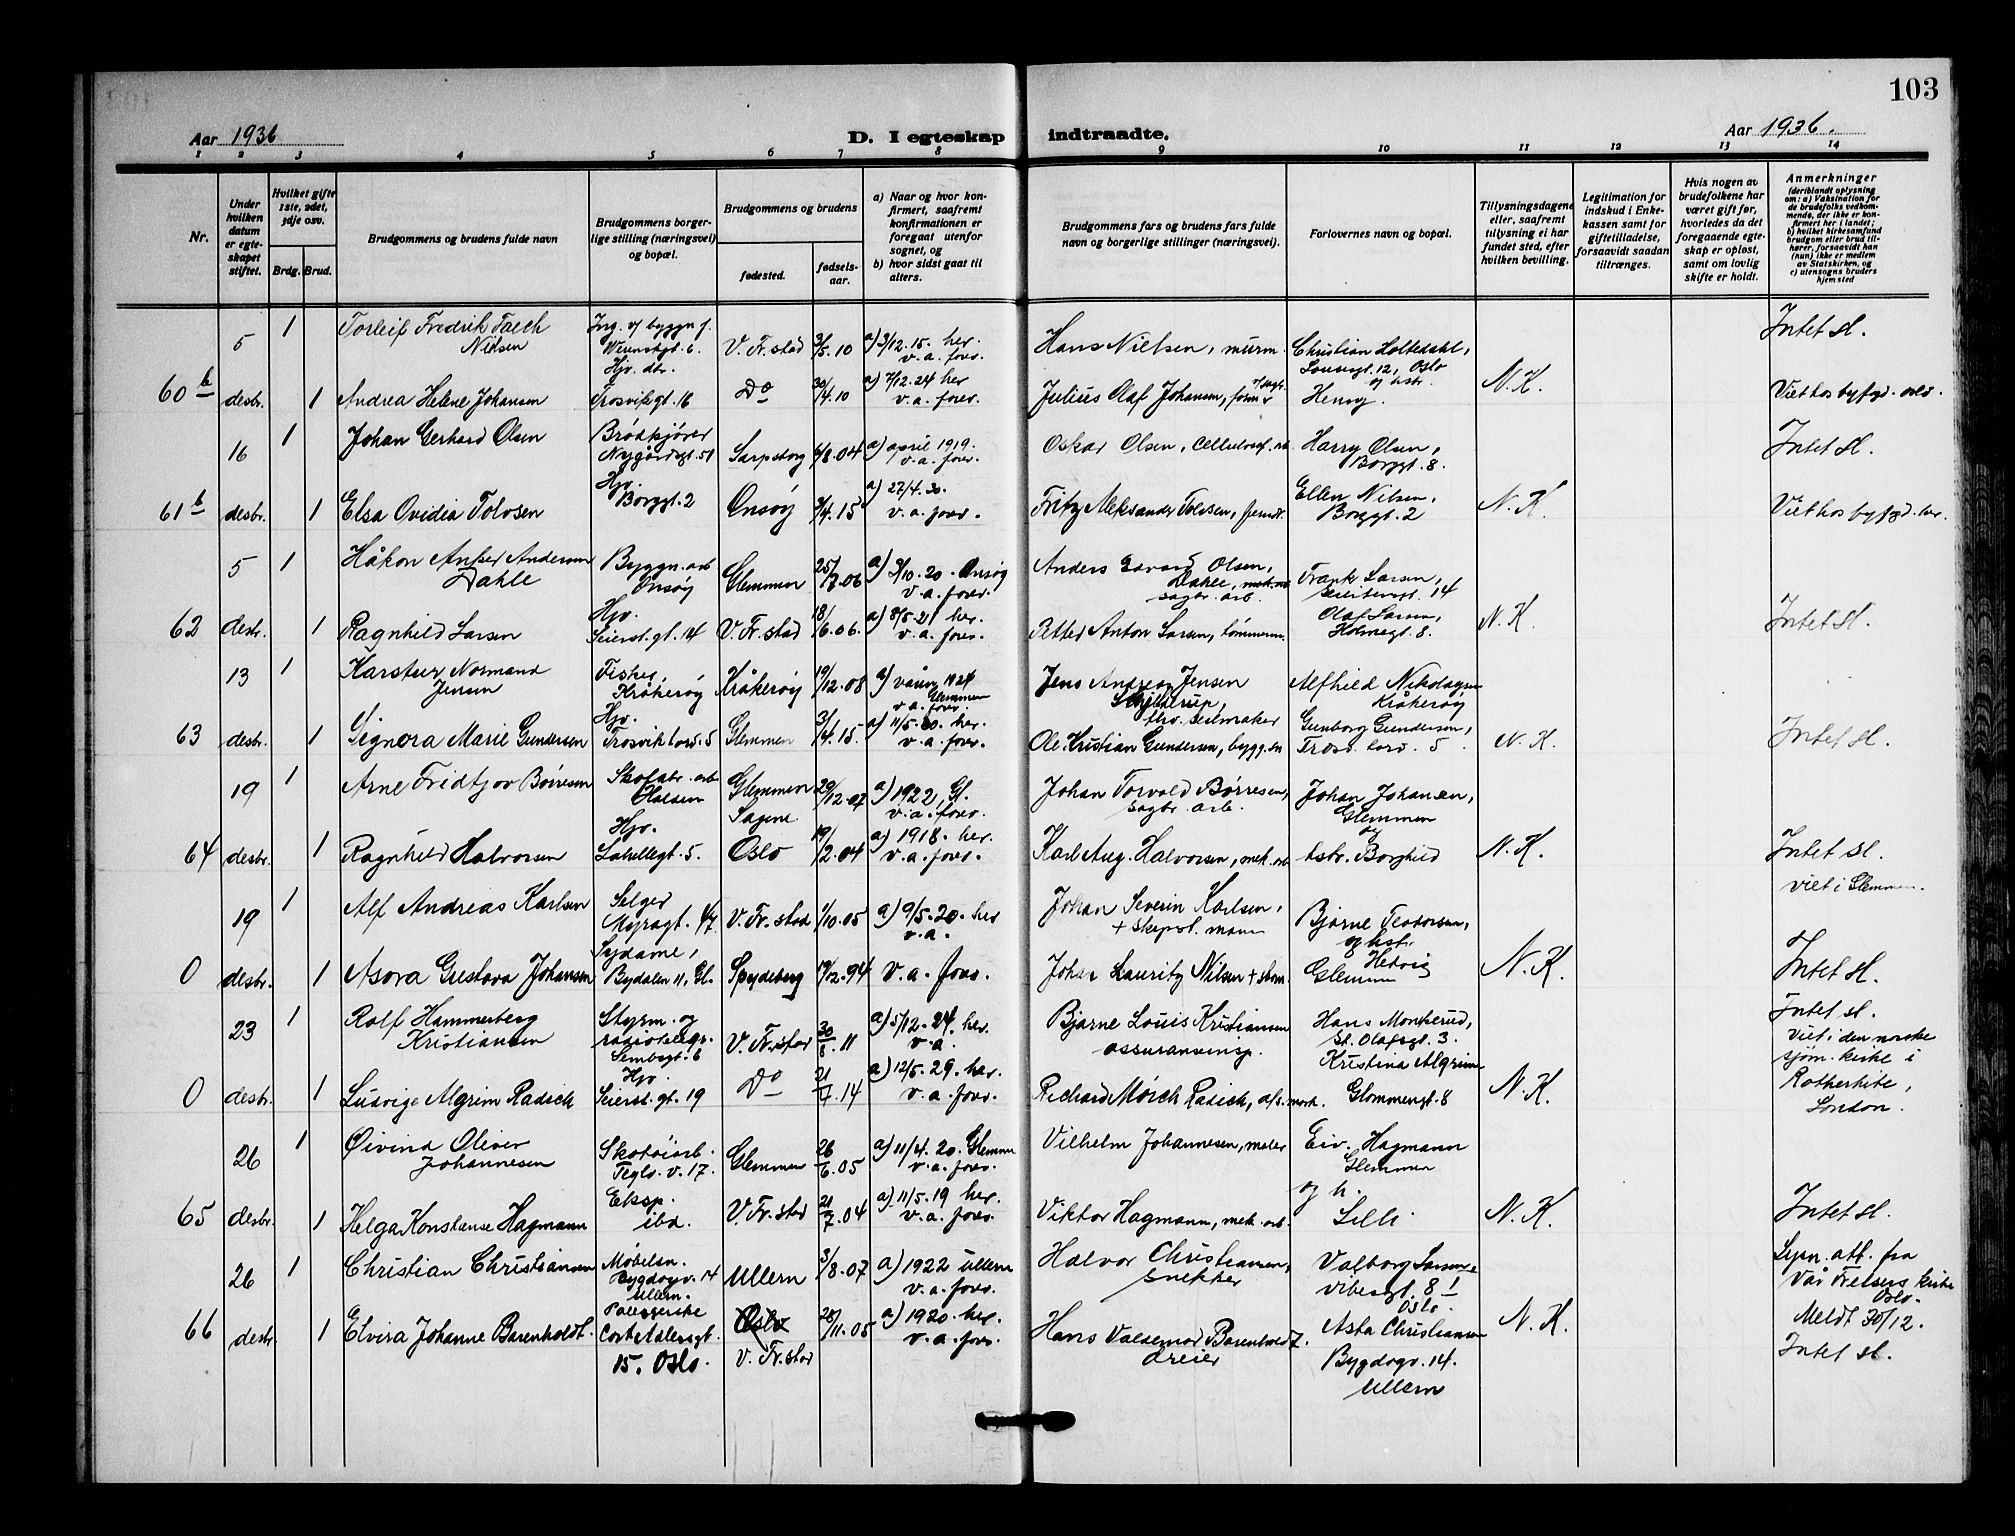 103
Aar 1936
D. I egteskap
indtraadte.
Aar 1936.
1 2 3 4 5 6 7 8 9 10 11 12 13 14
Nr.
Under hvilken datum er egteskapet stiftet.
Hvilket gifte 1ste, 2det, 3dje osv.
Brdg. Brud.
Brudgommens og brudens fulde navn
Brudgommens borgerlige stilling (næringsvei) og bopæl.
Brudgommens og brudens
fødested.
fødselsaar.
a) Naar og hvor konfirmert, saafremt konfirmationen er foregaat utenfor sognet, og
b) hvor sidst gaat til alters.
Brudgommens fars og brudens fars fulde navn og borgerlige stillinger (næringsvei).
Forlovernes navn og bopæl.
Tillysningsdagene eller, saafremt tillysning ei har fundet sted, efter hvilken bevilling.
Legitimation for indskud i Enkekassen samt for giftetilladelse, forsaavidt saadan tiltrænges.
Hvis nogen av brudefolkene har været gift før, hvorledes da det foregaaende egteskap er opløst, samt om lovlig skifte er holdt.
Anmerkninger (deriblandt oplysning om: a) Vaksination for de brudefolks vedkommende, der ikke er konfirmert her i landet; b) hvilket kirkesamfund brudgom eller brud tilhører, forsaavidt han (hun) ikke er medlem av Statskirken, og c) utensogns bruders hjemsted
5 1 Torleif Fredrik Falch Nielsen Ing. v/ byggn. f. V. Fr.stad 3/5.10 a) 3/12.15. her. v. a. forv. Hans Nielsen, murm. Christian Holtedahl, 12, Oslo Intet sl.
60b desbr. 1 Andrea Helene Johansen Hjv. dtr. Trosvikgt. 16 Do 30/4.10 a) 7/12.24 her v. a. forv. Julius Olaf Johansen, form. Henry. N. K. Viet hos byfgd. Oslo.
16 1 Johan Gerhard Olsen Brødkjører Nygårdsgt. 51 Sarpsborg 6/8.04 a) april 1919. v. a. forv. Oskar Olsen, Cellulosef. arb. Harry Olsen, Borggt. 8. Intet sl.
61b desbr. 1 Elsa Ovidia Tolvsen Hjv. Borggt. 2 Onsøy 3/4.15 a) 27/4.30. v. a. forv. Fritz Aleksander Tolvsen, Ellen Nilsen, Borggt. 2 N. K. Viet hos byfgd. her.
5 1 Håkon Anker Andersen Dahle Byggn. arb Onsøy Glemmen 25/7.06 a) 3/10.20. Onsøy v. a. forv. Anders Olsen, Dahle, sagbr. arb. Frank Larsen, 14
62 desbr. 1 Ragnhild Larsen Hjv. Seierst.gt. 14 V. Fr.stad 18/6.06. a) 8/5.21 her. v. a. forv. Petter Anton Larsen, tømmerm. Olaf Larsen, Holmegt. 8. N. K. Intet sl.
13 1 Karsten Normand Jensen Fisker Kråkerøy Kråkerøy 19/12.08 a) våren 1924 Glemmen v. a. forv. Jens Andreas Jensen fhv. seilmaker Alfhild Nikolaysen Kråkerøy
63 desbr. 1 Signora Marie Gundersen Hjv. Trosvik tord. 5 Glemmen 3/4.15. a) 11/5.30. her. v. a. forv. Ole Kristian Gundersen, bygg.sn Gunborg Gundersen, Trosv. tord. 5 N. K. Intet sl.
19 1 Arne Fridtjov Børresen Skofabr. arb. Glemmen 29/12.07 a) 1922, Gl. v. a. forv. Johan Torvald Børresen, sagbr. arb. Johan Johansen, Glemmen
64 desbr. 1 Ragnhild Halvorsen Hjv. Lahellegt. 5. Sagene Oslo 19/2.04 a) 1918. her. v. a. forv. Karl Aug. Halvorsen, mek. arb og hstr. Borghild N. K. Intet sl. viet i Glemmen.
19 1 Alf Andreas Karlsen Selger Myragt. 47. V. Fr. stad 1/10.05 a) 9/5.20. her v. a. Johan Severin Karlsen, + skipst. mann Bjarne Teodorsen,
0 desbr. 1 Asora Gustava Johansen Sydame, Bydalen 11, Gl. Spydeberg 19/12.94 v. a. forv. Johan Lauritz Nilsen + og hstr. Hedvig Glemmen N. K. Intet sl.
23 1 Rolf Hammerberg Kristiansen Styrm. og radiotelegr. Lembsgt. 6 V. Fr.stad 30/8.11 a) 5/12.24. her. v. a. Bjarne Louis Kristiansen assuranseinsp. Hans Montserud, St. Olafsgt. 3. Intet sl. Viet i den norske sjøm. kirke i Rotherhite, London.
0 desbr. 1 Ludvige Algrim Radich Hjv. Seierst. gt. 19 Do 21/7.14 a) 12/5.29. her. v. a. forv. Richard Mørch Radich, Kristina Algrim Glommengt. 8 N. K.
26 1 Øivind Oliver Johannesen Skotøiarb. Teglv. v. 17. Glemmen 26/6.05 a) 11/4.20. Glemmen v. a. forv. Vilhelm Johannesen, maler Eiv. Hagmann Glemmen
65 desbr. 1 Helga Konstanse Hagmann Eksp. ibd. V. Fr.stad 21/7.04 a) 11/5.19 her. v. a. forv. Viktor Hagmann, mek. arb. og h. Lilli N. K. Intet sl.
26 1 Christian Christiansen Møbelsn. Bygdøgv. 14 Ullern. Ullern 3/8.07 a) 1922 Ullern v. a. forv. Halvor Christiansen, snekker Valborg Larsen, Vibesgt. 8 I Oslo. Lysn. att. fra Vår Frelsers kirke Oslo. Meldt 30/12.
66 desbr. 1 Elvira Johanne Barenholdt. Cort Adelersgt. 15. Oslo. Oslo V. Fr. stad 28/11.05 a) 1920. her. v. a. forv. Hans Valdemar Barenholdt, dreier Asta Christiansen Bygdøgv. 14. Ullern N. K. Intet sl.